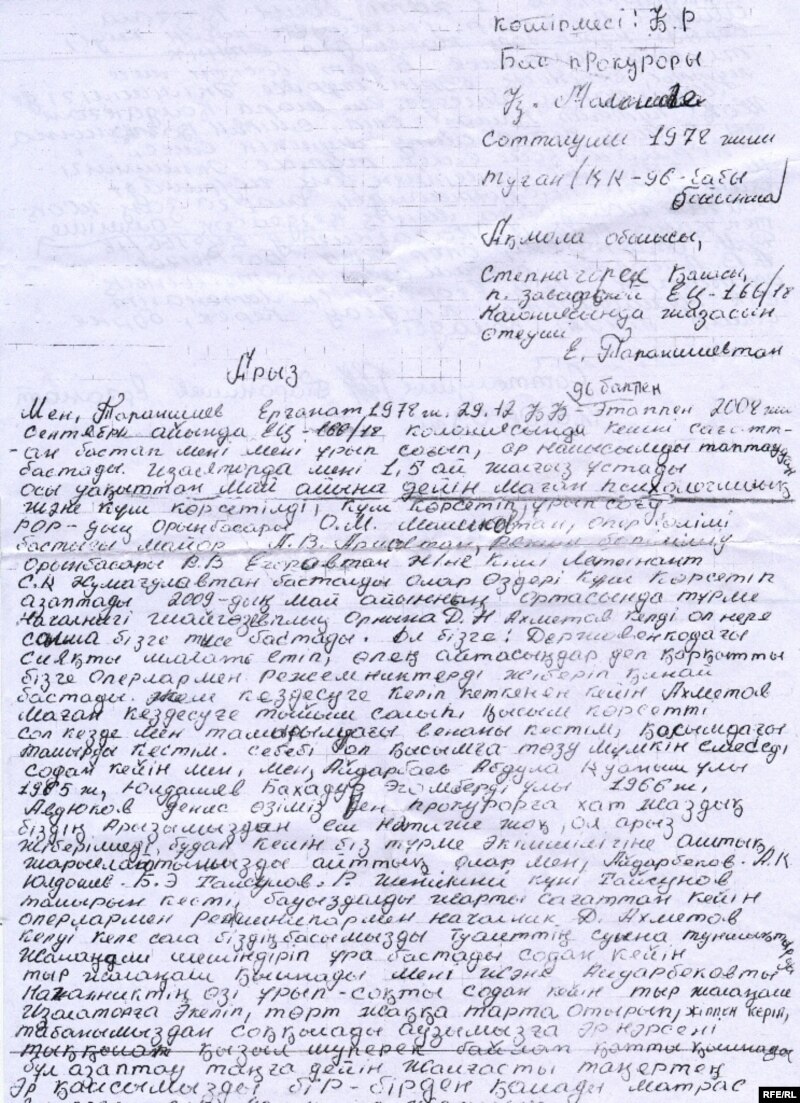 көшірмесі: Қ.Р
Бас прокуроры
Қ.
Сотталушы 1978 жылы
туған (ҚК-96-бабы
бойынша)
Ақмола облысы,
Степнагорск қаласы,
п. Заводской ЕЦ-166/18
Калониясында жазасын
өтеуші
Е. Тараншиевтан
Арыз
96 баппен
Мен, Тараншиев Ерганат 1978 ж. 29.12 Этаппен 2008 жы
Сентябрь айында ЕЦ-166/18 колониясында кешкі сағатт-
-ан бастап мені мені ұрып соғып, ар намысымды таптауды
бастады. Изаляторда мені 1,5 ай жалғыз ұстады
осы уақыттан май айына дейін маған психологиялық
және күш көрсетілді, күш көрсетіп, ұрып соғу
РОР-дың Орынбасары О.М. опер бөлімі
бастығы майор А.В. режим бөлімінің
Орынбасары В.В Егоравтан және кіші Летейнант
С.К Жумагулавтан басталды олар Өздері күш Көрсетіп
азаптады 2009-дың май айының ортасында түрме
Началнигі орнына Д.Н Ахметов келді ол кере
салша бізге тисе бастады. Ол бізге: Держовенкодағы
сияқты етіп, өлең айтасыңдар деп қорқытты
бізге Оперлармен Режемниктерді жіберіп қинай
бастады. Әкем кездесуге келіп кеткенен кейін Ахметов
маған кездесуге тыйым салып, қысым көрсетті
сол кезде мен тамырымдағы венаны кестім, қасымдағы
тамырды кестім. себебі ол қысымға төзу мүмкін емес еді
содан кейін мен, мен, Айдарбаев Абдула Қуаныш улы
1985 ж, Юлдашев Бахадур Эгомберді улы 1966 ж,
Авдюков денис өзіміз прокурорға хат жаздық
біздің Арызымыздан еш нәтиже жоқ, ол арыз
жіберілмеді, бұдан кейін біз түрме әкімшілігіне аштық
жариялайтынымызды айттық олар мен, Айдарбеков. А.К
Юлдошев. Б.Э Гайсунов. Р. күні Гайсунов
тамырын кесті, бауыздалды жарты сағаттан кейін
оперлармен Режиниктармен началник Д. Ахметов
келді келе сала біздің басымызды туалеттің суына
Жалаңаш шешіндіріп ұра бастады содан кейін
тыр жалаңаш қылшады мені және Айдарбековты
Начанниктің өзі ұрып-соқты содан кейін тыр жалаңаш
Изалаторға Әкеліп, төрт жаққа тарта отырып, жіппен керіп,
табанымыздан соққылады аузымызға әр нәрсені
тыққылап қызыл шүперек байлап қатты
бұл азаптау таңға дейін жалғасты таңертең
Әр қайсымызды бір-бірден қамады матрас
RFE/RL